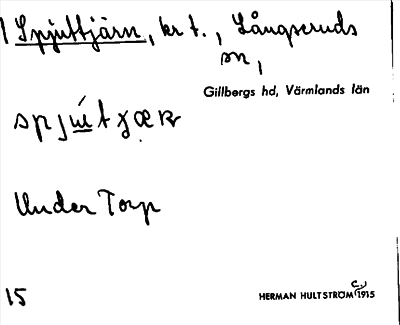 1 Spjuttjärn, kr t., Långseruds
sn,
Gillbergs hd, Värmlands län
Under Torp
15
HERMAN HULTSTRÖM c. 1915